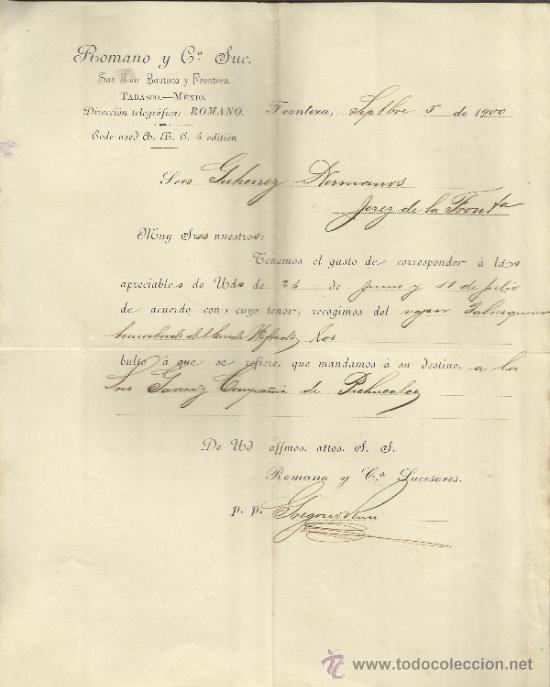 Romano y Cª Suc.
San Juan Bautista y Frontera.
TABASCO.—MÉXIO.
Dirección telegráfica: ROMANO.
Code used A. B. C. 4 edition
Frontera, Septbre 5 de 1900
Sres Gutierrez Hermanos
Jerez de la Fronta
Muy Sres nuestros:
Tenemos el gusto de corresponder á las
apreciables de Uds de 26 de Junio y 11 de Julio
de acuerdo con cuyo tenor, recogimos del vapor Tabasqueño
los
bultos á que se refiere, que mandamos á su destino, a los
Sres Compañia de Pichucalco
De Ud affmos. attos. S. S.
Romano y Cª Sucesores.
p. p. Gregorio
todocoleccion
www.todocoleccion.net